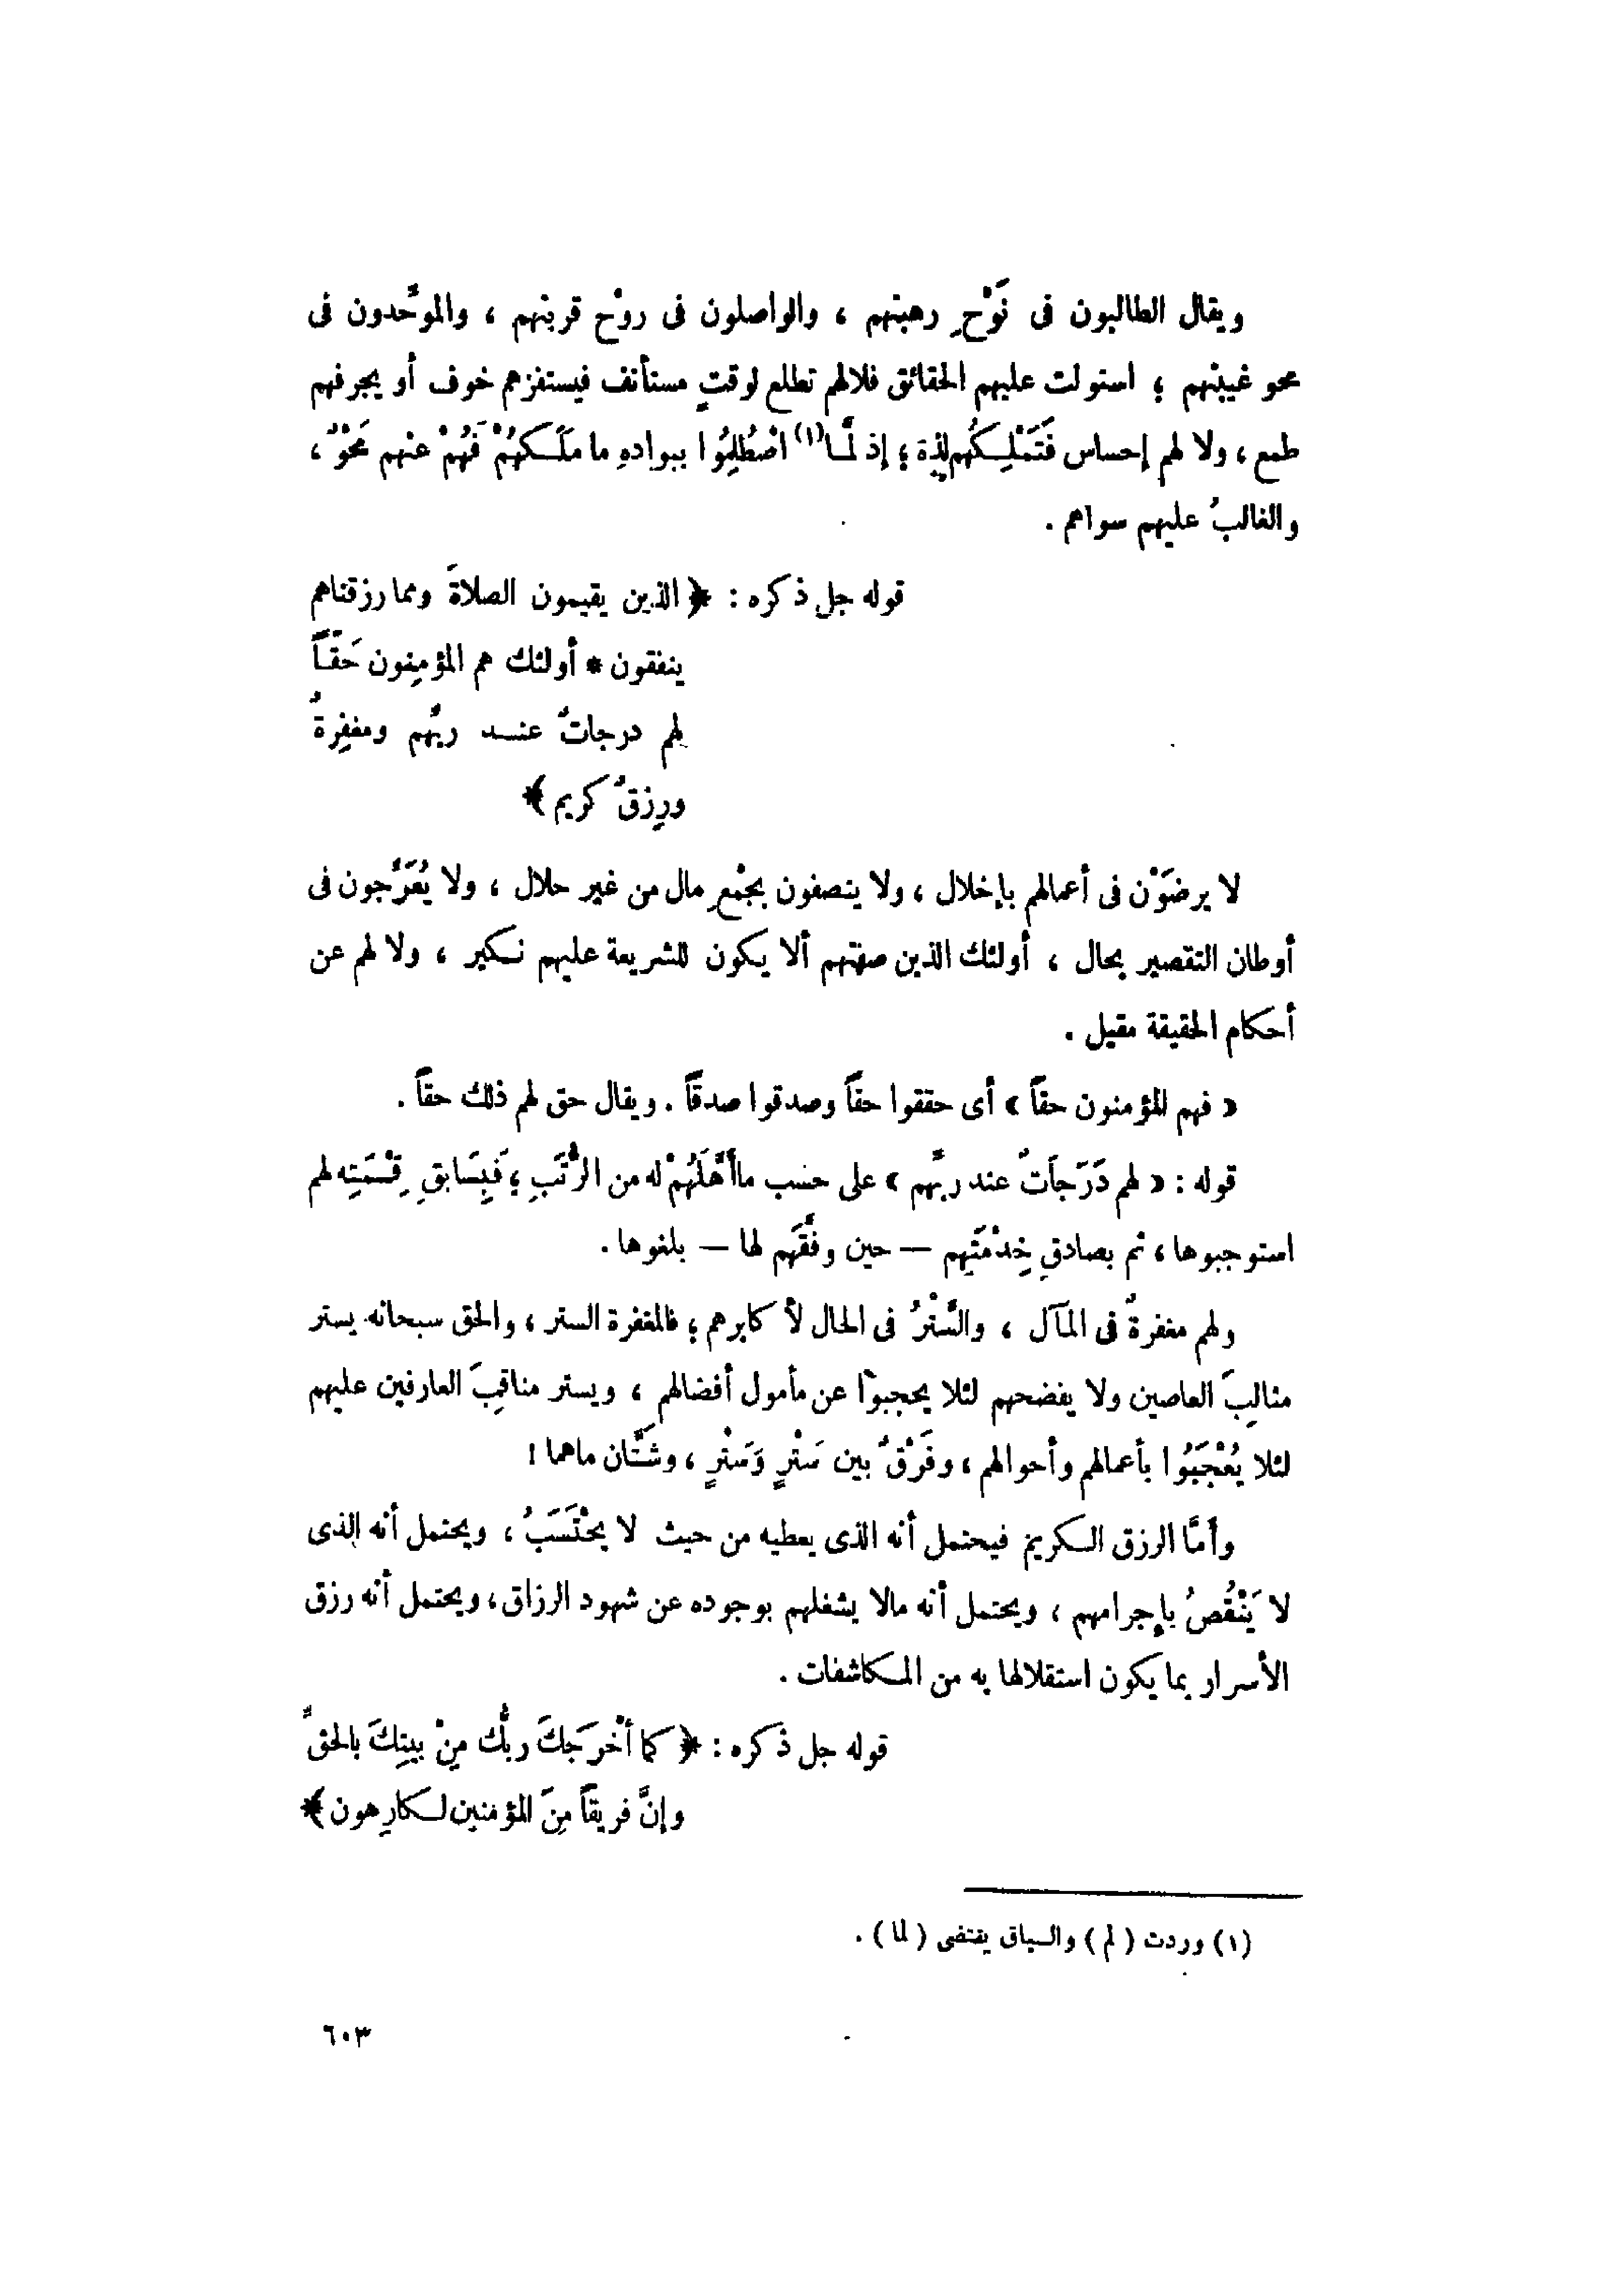 ويقال الطالبون فى نَوْحِ رهبتهم ، والواصلون فى روْح قربتهم ، والموحِّدون فى
محو غيبتهم ؛ استولت عليهم الحقائق فلالهم تطلع لوقتٍ مستأنف فيستفزهم خوف أو يجرفهم
طمع ، ولا لهم إحساس فَتَمْلِكُهم لذة ؛ إذ لَّما(١) اصْطُلِمُوا ببوادهِ ما مَلَكهُمْ فَهُمْ عنهم مَحْوٌ ،
والغالبُ عليهم سواهم .
قوله جل ذكره : ﴿ الذين يقيمون الصلاةَ ومما رزقناهم
ينفقون * أولئك هم المؤمِنون حَقَّاً
لهم درجاتٌ عند ربِّهم ومغفِرةٌ
ورِزقٌ كريم ﴾
لا يرضَوْن فى أعمالهم بإخلال ، ولا يتصفون بجْمعِ مال من غير حلال ، ولا يُعَرِّجون فى
أوطان التقصير بحال ، أولئك الذين صفتهم ألا يكون للشريعة عليهم نكير ، ولا لهم عن
أحكام الحقيقة مقيل .
« فهم المؤمنون حقاً » أى حققوا حقاً وصدقوا صدقاً . ويقال حق لهم ذلك حقاً .
قوله : « لهم دَرَجَاتٌ عند ربِّهم » على حسب ماأَهَّلَهُمْ له من الرُّتَبِ ؛ فَبِسَابقِ قِسْمَتِه لهم
استوجبوها ، ثم بصادقِ خِدْمَتِهم — حين وفَّقَهم لها — بلغوها .
ولهم مغفرةٌ فى المآل ، والسَّتْرُ فى الحال لأكابرهم ؛ فالمغفرة الستر ، والحق سبحانه يستر
مثالبَ العاصين ولا يفضحهم لئلا يحجبوا عن مأمول أفضالهم ، ويستر مناقبَ العارفين عليهم
لئلا يُعْجَبُوا بأعمالهم وأحوالهم ، وفَرْقٌ بين سَتْرٍ وَسَتْرٍ ، وشتَّان ماهما !
وأمَّا الرزق الكريم فيحتمل أنه الذى يعطيه من حيث لا يحْتَسَبُ ، ويحتمل أنه الذى
لا يَنْقُصُ بإجرامهم ، ويحتمل أنه مالا يشغلهم بوجوده عن شهود الرزاق ، ويحتمل أنه رزق
الأسرار بما يكون استقلالها به من المكاشفات .
قوله جل ذكره : ﴿ كما أخْرَجَكَ ربُّك مِنْ بيتِكَ بالحقِّ
وإنَّ فريقاً مِنَ المؤمنين لكارِهون ﴾
(١) وردت ( لم ) والسياق يقتضى ( لما ) .
٦٠٣